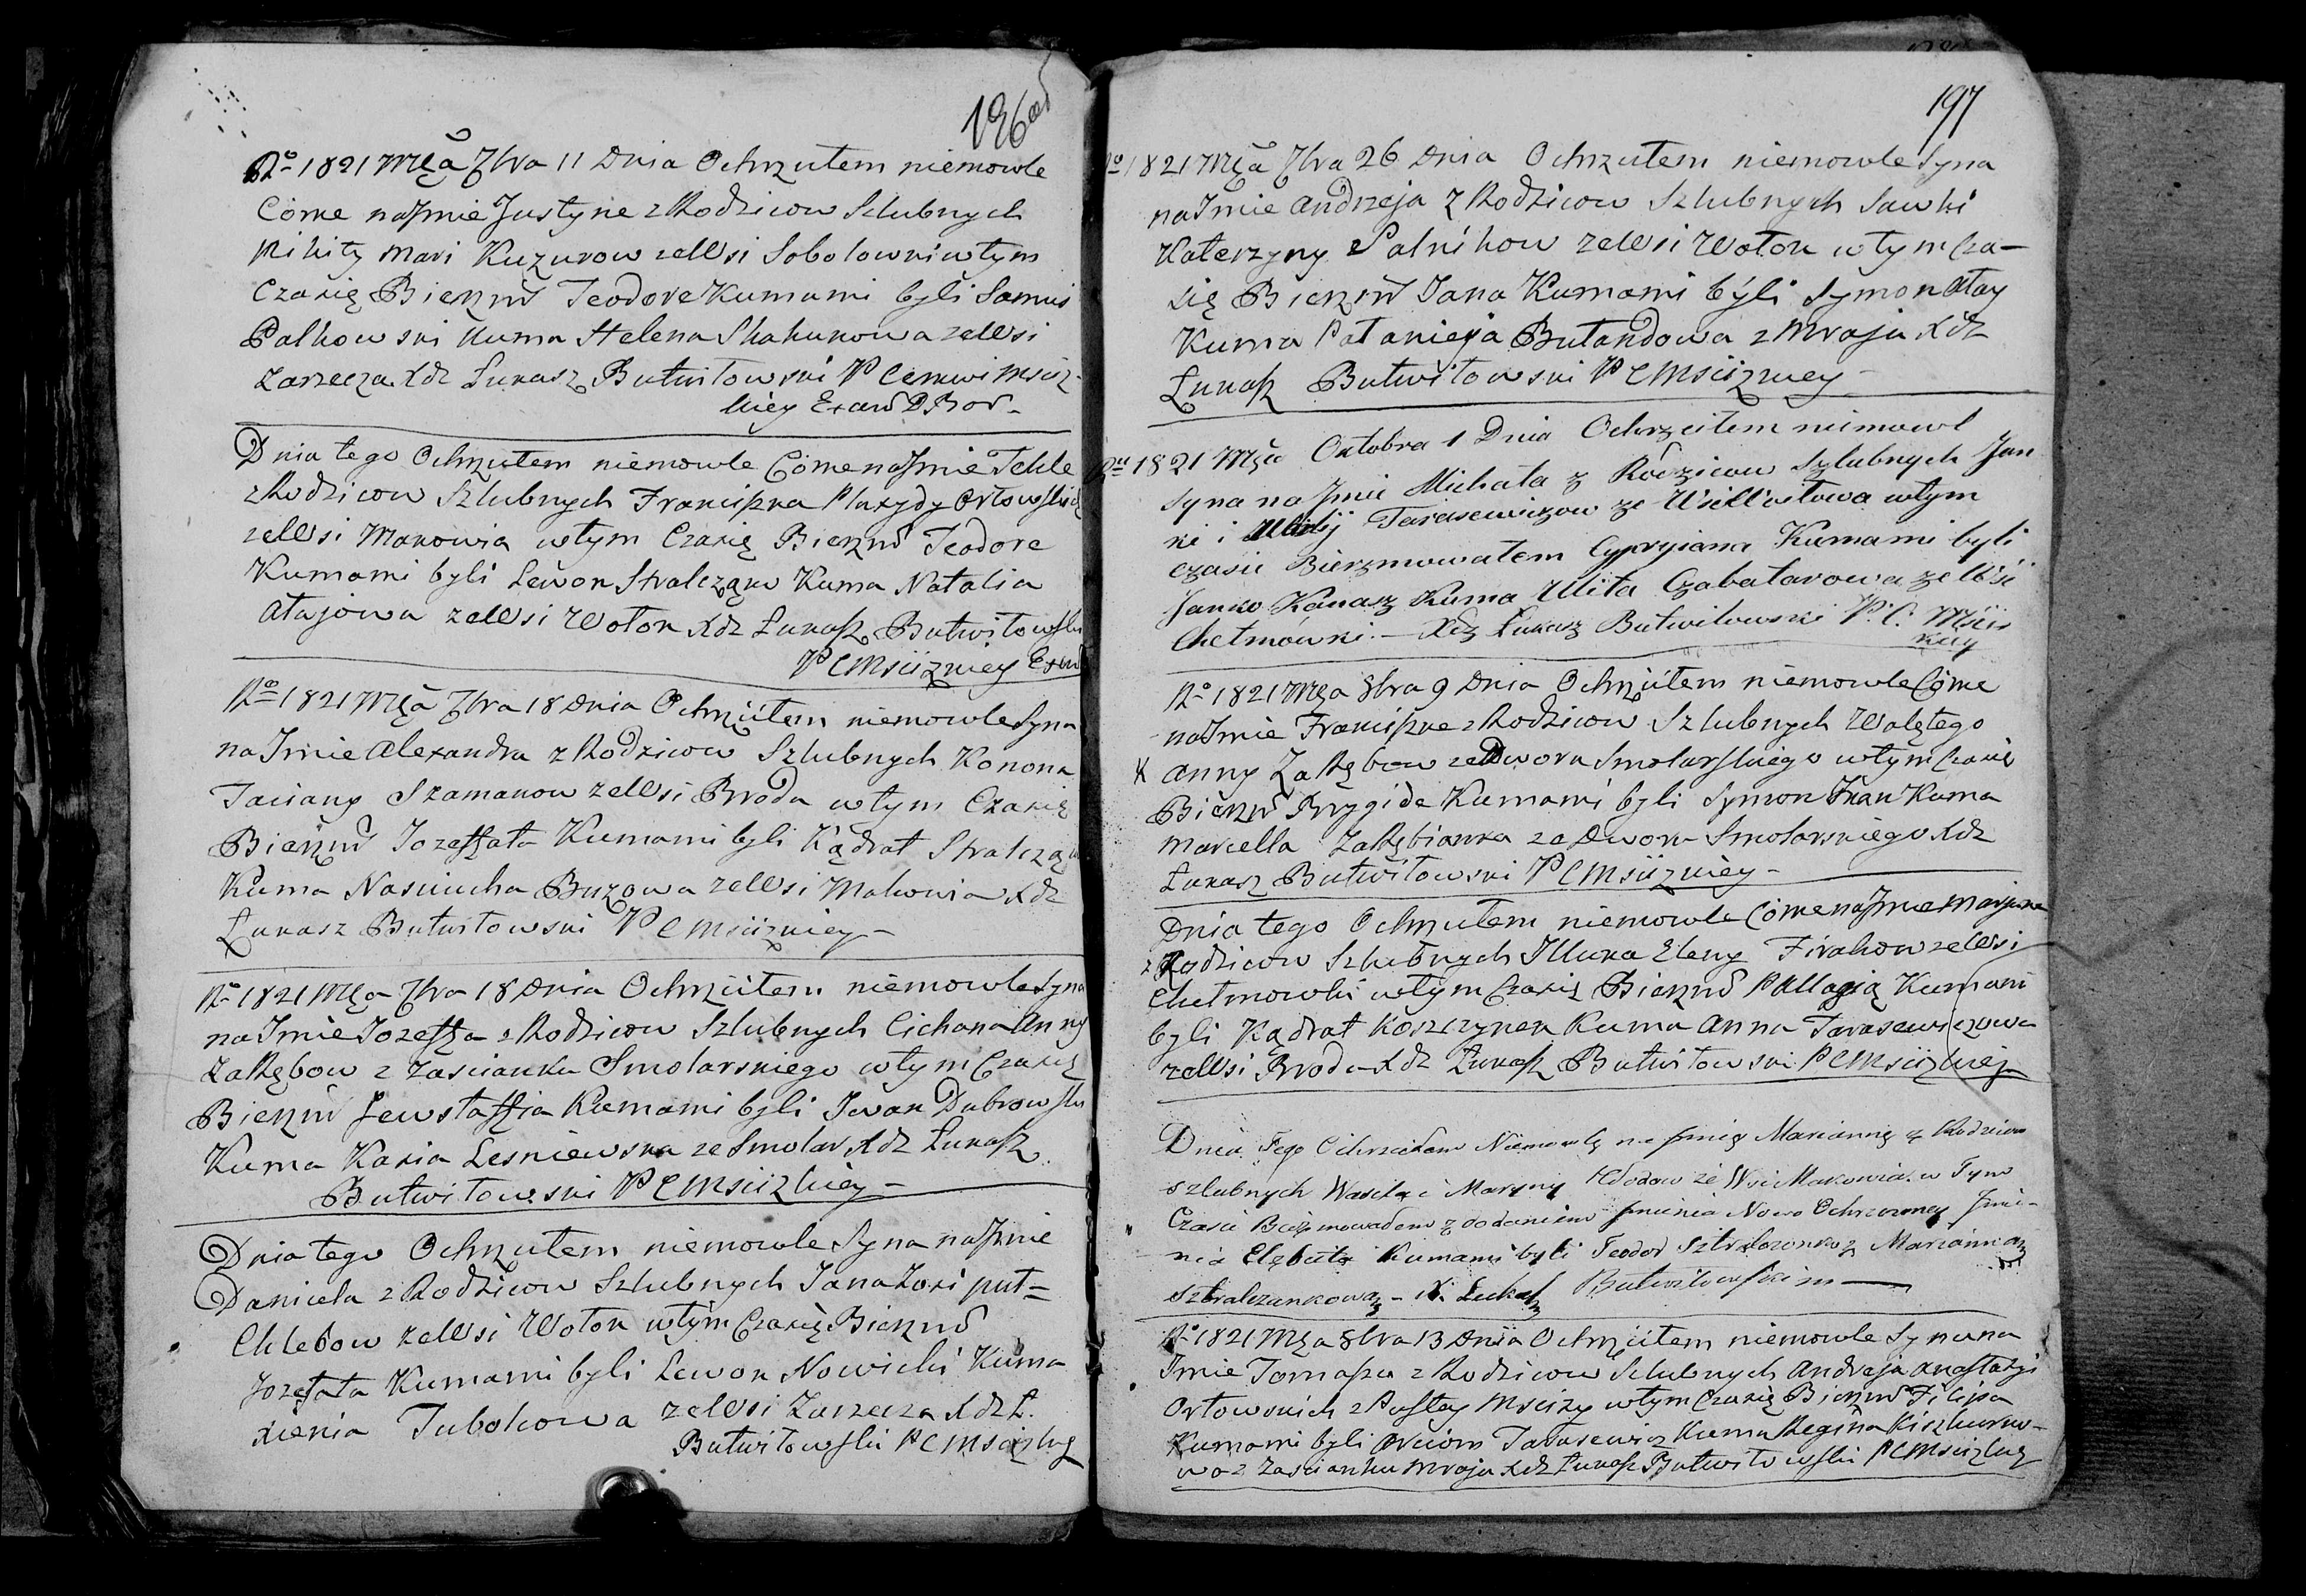 196 od
Ro 1821 Mca 7bra 11 Dnia Ochrzciłem niemowle
Córke na Imie Justyne z Rodzicow Szlubnych
Mikity Mari Kuzurow ze Wsi Sobolowki w tym
Czasię Bierzm Teodore Kumami byli Samuś
Palkowski Kuma Helena Skakunowa ze Wsi
Zarzecza Xdz Łukasz Butwiłowski P Cerkwi Msciż-
kiey
Dnia tego Ochrzciłem niemowle Córke na Imie Tekle
z Rodzicow Szlubnych Franciszka Plaxydy Orłowskich
ze Wsi Makowia w tym Czasię Bierzm Teodore
Kumami byli Lewon Stralcząk Kuma Natalia
Atajowa ze Wsi Wołok Xdz Łukasz Butwiłowski
P C Msciżkiey
Ro 1821 Mca 7bra 18 Dnia Ochrzciłem niemowle Syna
na Imie Alexandra z Rodzicow Szlubnych Konona
Taciany Szamakow ze Wsi Broda w tym Czasię
Bierzm Jozefata Kumami byli Kądrat Stralcząk
Kuma Nasciucha Buzowa ze Wsi Makowia Xdz
Łukasz Butwiłowski P C Msciżkiey
Ro 1821 Mca 7bra 18 Dnia Ochrzciłem niemowle Syna
na Imie Jozefa z Rodzicow Szlubnych Cichana Anny
Zarębow z Zascianku Smolarskiego w tym Czasię
Bierzm Jewstafija Kumami byli Iwan Dubrowski
Kuma Kasia Lesniewska ze Smolar Xdz Łukasz
Butwiłowski P C Msciżkiey
Dnia tego Ochrzciłem niemowle Syna na Imie
Daniela z Rodzicow Szlubnych Jana Zosi put=
Chlebow ze Wsi Wołok w tym Czasię Bierzm
Jozefata Kumami byli Lewon Nowicki Kuma
Xienia Tubokowa ze Wsi Zarzecza Xdz Ł.
Butwiłowski P C Msciżkiey
197
Ro 1821 Mca 7bra 26 Dnia Ochrzciłem niemowle Syna
na Imie Andrzeja z Rodzicow Szlubnych Sawki
Katerzyny Palnikow ze Wsi Wołok w tym Cza-
się Bierzm Jana Kumami byli Symon Atay
Kuma Pałanieja Butandowa z Mraja Xdz
Łukasz Butwiłowski P C Msciżkiey
Ru 1821 Mca Oktobra 1 Dnia Ochrzciłem niemowl
Syna na Imie Michała z Rodzicow Szlubnych Jan
ki i Tarasewiczow ze Wsi w tym
czasie Bierzmowałem Cypryiana Kumami byli
Janko Kanasz Kuma Ulita Czabatarowa ze Wsi
Chełmówki. — Xdz Łukasz Butwiłowski P. C. Mściż
kiey
Ro 1821 Mca 8bra 9 Dnia Ochrzciłem niemowle Córke
na Imie Franciszke z Rodzicow Szlubnych Walętego
Anny Zarębow ze Dworu Smolarskiego w tym Czasię
Bierzm Brygide Kumami byli Symon Żuk Kuma
Marcella Zarębianka ze Dworu Smolarskiego Xdz
Łukasz Butwiłowski P C Msciżkiey
Dnia tego Ochrzciłem niemowle Córke na Imie Maryanne
z Rodzicow Szlubnych Illuka Eleny Firakow ze Wsi
Chełmowki w tym Czasię Bierzm Pallagią Kumami
byli Kądrat Koszczynek Kuma Anna Tarasewiczowa
ze Wsi Broda Xdz Łukasz Butwiłowski P C Msciżkiej
Dnia Tego Ochrzciłem Niemowlę na Imię Mariannę z Rodzicow
szlubnych Wasila i Maryny Hłodow ze Wsi Makowia. w Tym
Czasie Bierzmowałem z dodaniem Imienia Nowo Ochrzconey Imie-
nia Elżbieta Kumami byli Teodor Sztralczonkoz Marianna
Sztralczankowa — X. Łukasz Butwiłowski m
Ro 1821 Mca 8bra 13 Dnia Ochrzciłem niemowle Syna na
Imie Tomasza z Rodzicow Szlubnych Andreja Anastazyi
Orłowskich z Pustay Msciży w tym Czasię Bierzm Filipa
Kumami byli Arciom Tarasewicz Kuma Regina Kiszkurno-
wa z Zascianku Mraja Xdz Łukasz Butwiłowski P C Msciżkiey